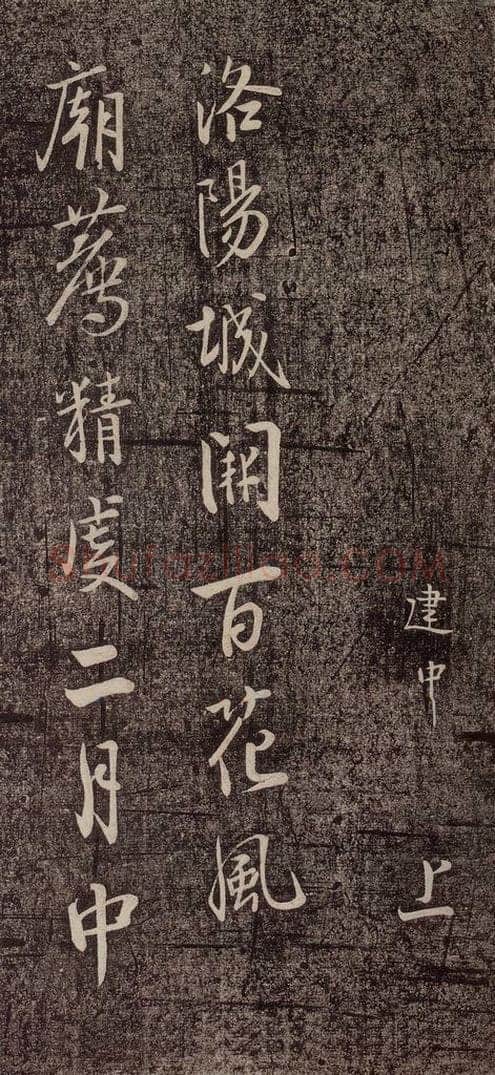 建中 上
洛陽城闕百花風
廟薦精虔二月中